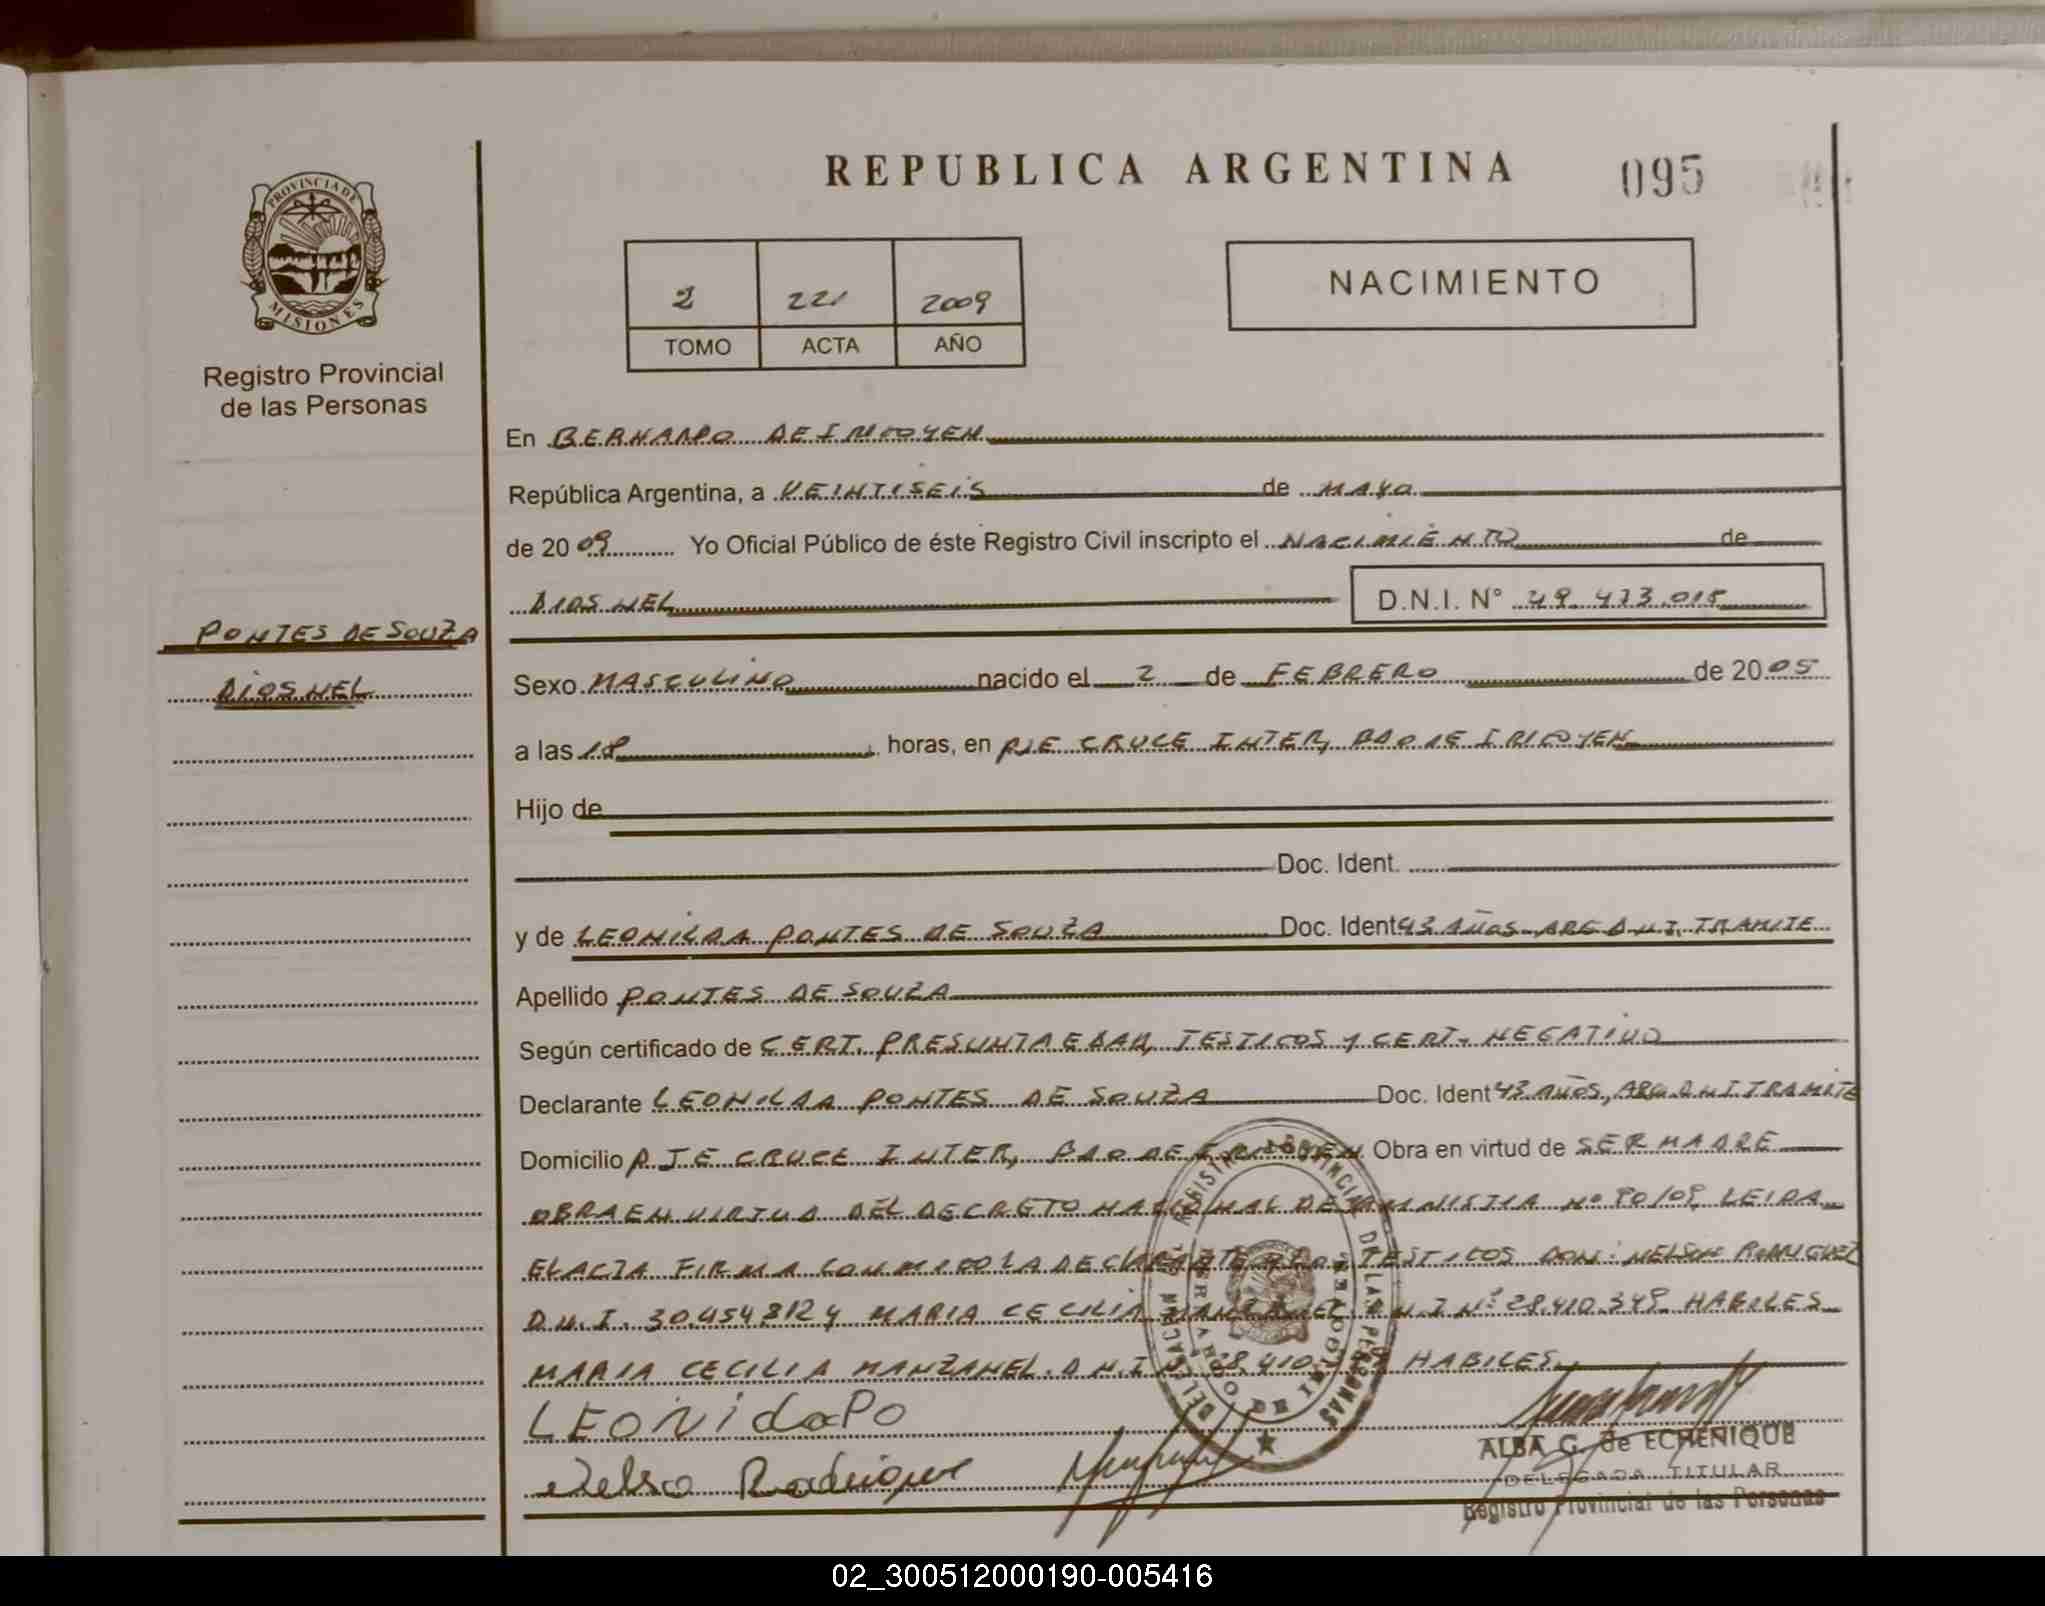 REPUBLICA ARGENTINA
095
PROVINCIA DE
MISIONES
Registro Provincial
de las Personas
2 221 2009
TOMO ACTA AÑO
NACIMIENTO
En BERNARDO DE IRIGOYEN
República Argentina, a VEINTISEIS de MAYO
de 20 09 Yo Oficial Público de éste Registro Civil inscripto el NACIMIENTO de
DIOSNEL D.N.I. N° 49.473.015
PONTES DE SOUZA
DIOSNEL
Sexo MASCULINO nacido el 2 de FEBRERO de 20 05
a las 18 horas, en PJE CRUCE INTER, BDO DE IRIGOYEN
Hijo de
Doc. Ident.
y de LEONILDA PONTES DE SOUZA Doc. Ident 43 AÑOS ARG D.N.I. TRAMITE
Apellido PONTES DE SOUZA
Según certificado de CERT. PRESUNTA EDAD, TESTIGOS Y CERT. NEGATIVO
Declarante LEONILDA PONTES DE SOUZA Doc. Ident 43 AÑOS, ARG. D.N.I. TRAMITE
Domicilio PJE CRUCE INTER, BDO DE IRIGOYEN Obra en virtud de SER MADRE
OBRA EN VIRTUD DEL DECRETO NACIONAL DE AMNISTIA Nº 90/09, LEIDA
EL ACTA FIRMA CONMIGO LA DECLARANTE Y LOS TESTIGOS DON: NELSON RODRIGUEZ
D.N.I. 30.454.812 Y MARIA CECILIA MANZANEL D.N.I Nº 28.410.349 HABILES
MARIA CECILIA MANZANEL. D.N.I 28.410 HABILES
LEONidaPo
Nelso Rodrigue
REGISTRO PROVINCIAL DE LAS PERSONAS
BERNARDO DE IRIGOYEN
ALBA G. de ECHENIQUE
DELEGADA TITULAR
Registro Provincial de las Personas
02_300512000190-005416